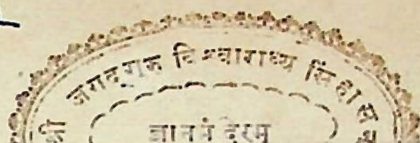 जगद्गुरु विश्वाराध्य सिंहास
ज्ञानमंदिरम्